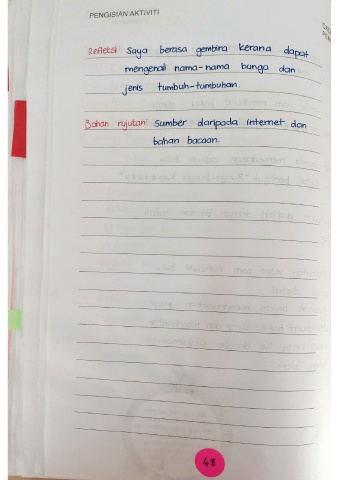 PENGISIAN AKTIVITI
Refleksi Saya berasa gembira kerana dapat
mengenali nama-nama bunga dan
jenis tumbuh-tumbuhan.
Bahan rujukan Sumber daripada internet dan
bahan bacaan.
48